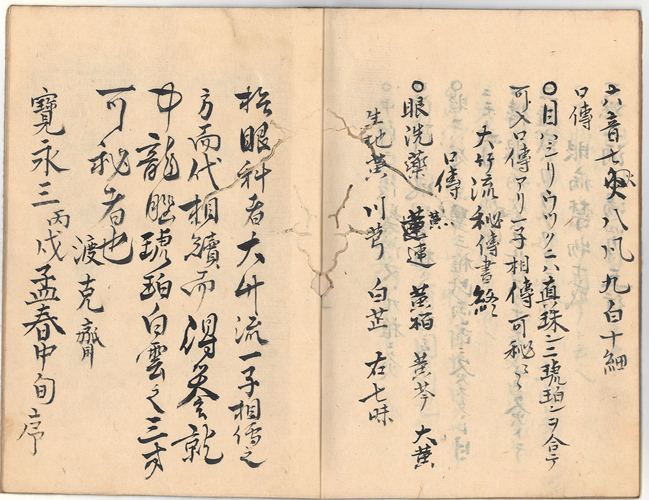 六音七火八風九白十細
口傳
〇目ハシリウツツニハ真珠ニ琥珀ヲ合テ
可入口傳アリ一子相傳可秘々
大竹流秘傳書終
口傳
〇眼洗藥 黄連 黄栢 黄芩 大黄
生地黄 川芎 白芷 右七味
於眼科者大竹流一子相傳之
方而代相續而得
中龍脳琥珀白雲之三方
可秘者也
渡克齋
寶永三丙戌孟春中旬序